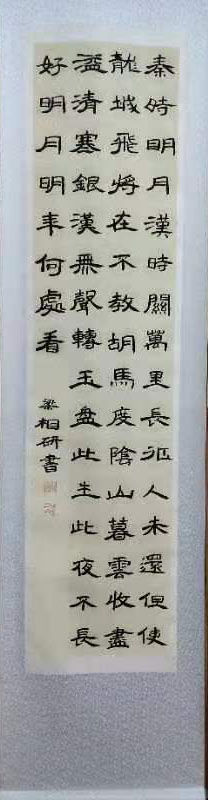 秦時明月漢時關萬里長征人未還但使
龍城飛將在不教胡馬度陰山暮雲收盡
溢清寒銀漢無聲轉玉盤此生此夜不長
好明月明年何處看
梁柏研書